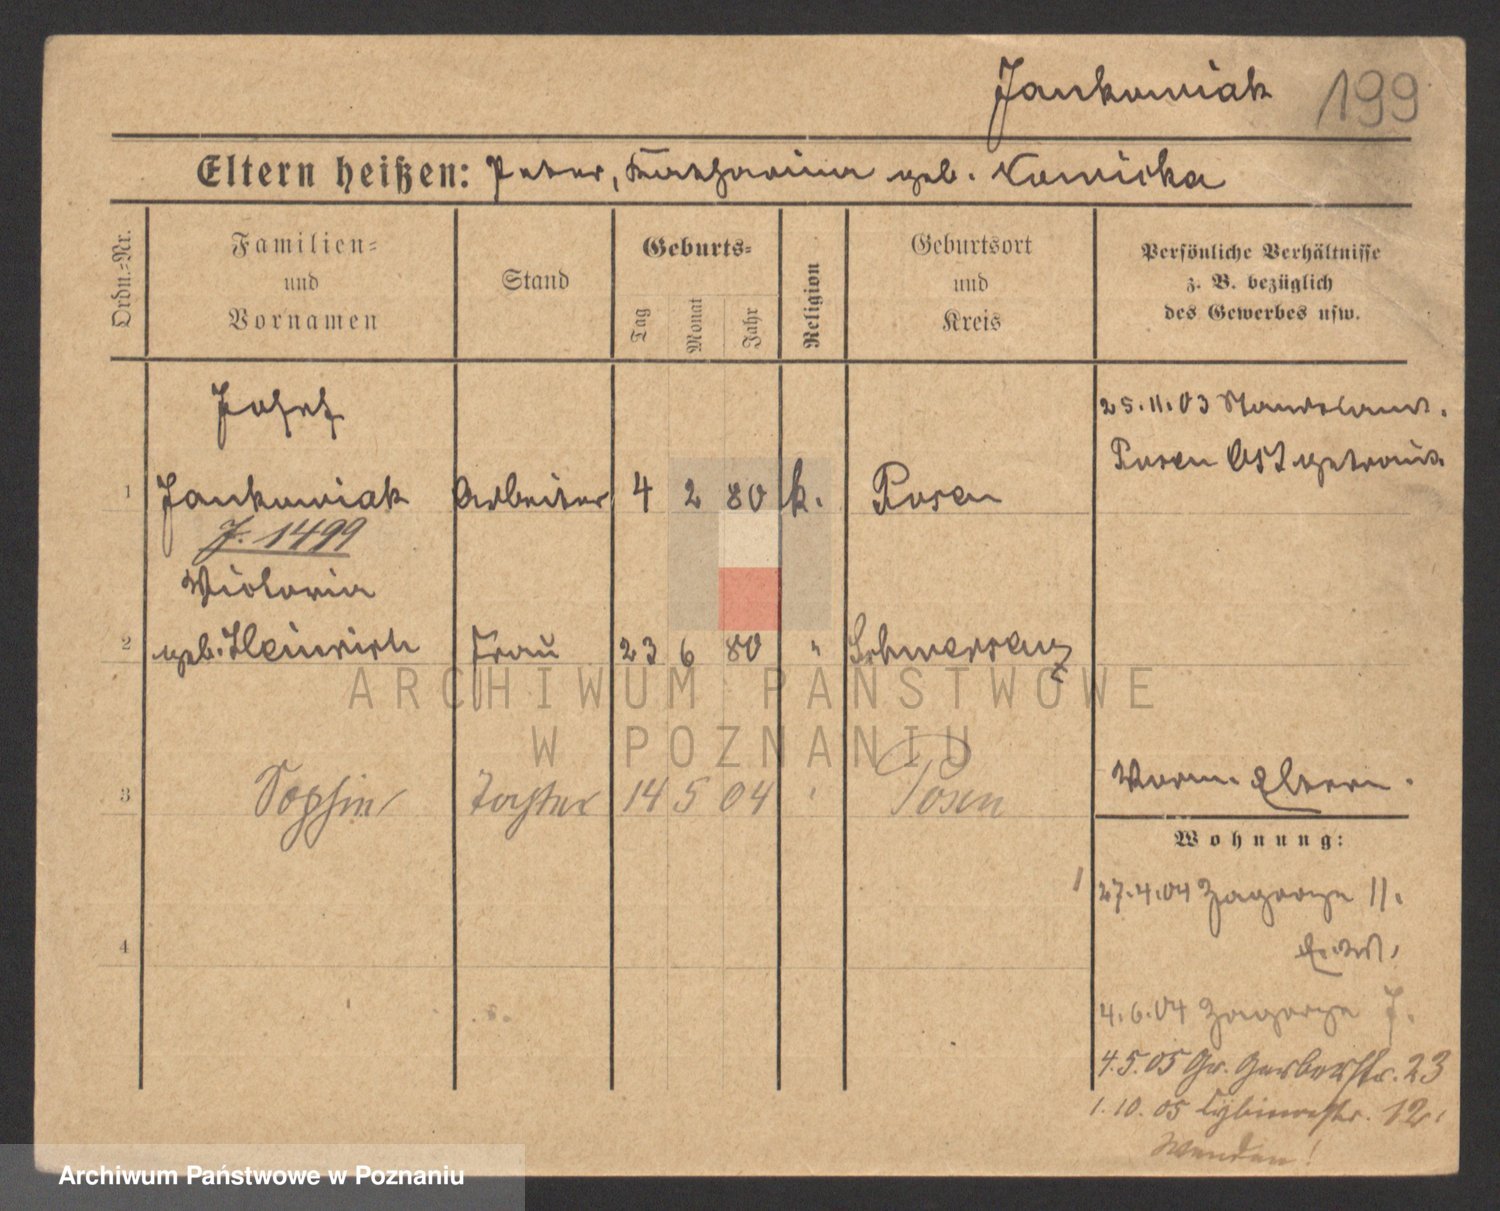 Jankowiak 199
Eltern heißen: Peter, Katharina geb. Nowicka
Ordn.-Nr.
Familien- und Vornamen
Stand
Geburts-
Tag Monat Jahr
Religion
Geburtsort und Kreis
Persönliche Verhältnisse
z. B. bezüglich
des Gewerbes usw.
Josef
25.11.03 Standesamt.
Posen Ost getraut.
1 Jankowiak Arbeiter 4 2 80 k. Posen
J. 1499
Victoria
2 geb. Heinrich Frau 23 6 80 " Schwersenz
ARCHIWUM PAŃSTWOWE
W POZNANIU
Vorm. Eltern.
3 Sophie Tochter 14 5 04 " Posen
Wohnung:
27.4.04 Zagorze 11.
4
4.6.04 Zagorze 7.
4.5.05 Gr. Gerberstr. 23
1.10.05 12.
Wenden!
Archiwum Państwowe w Poznaniu